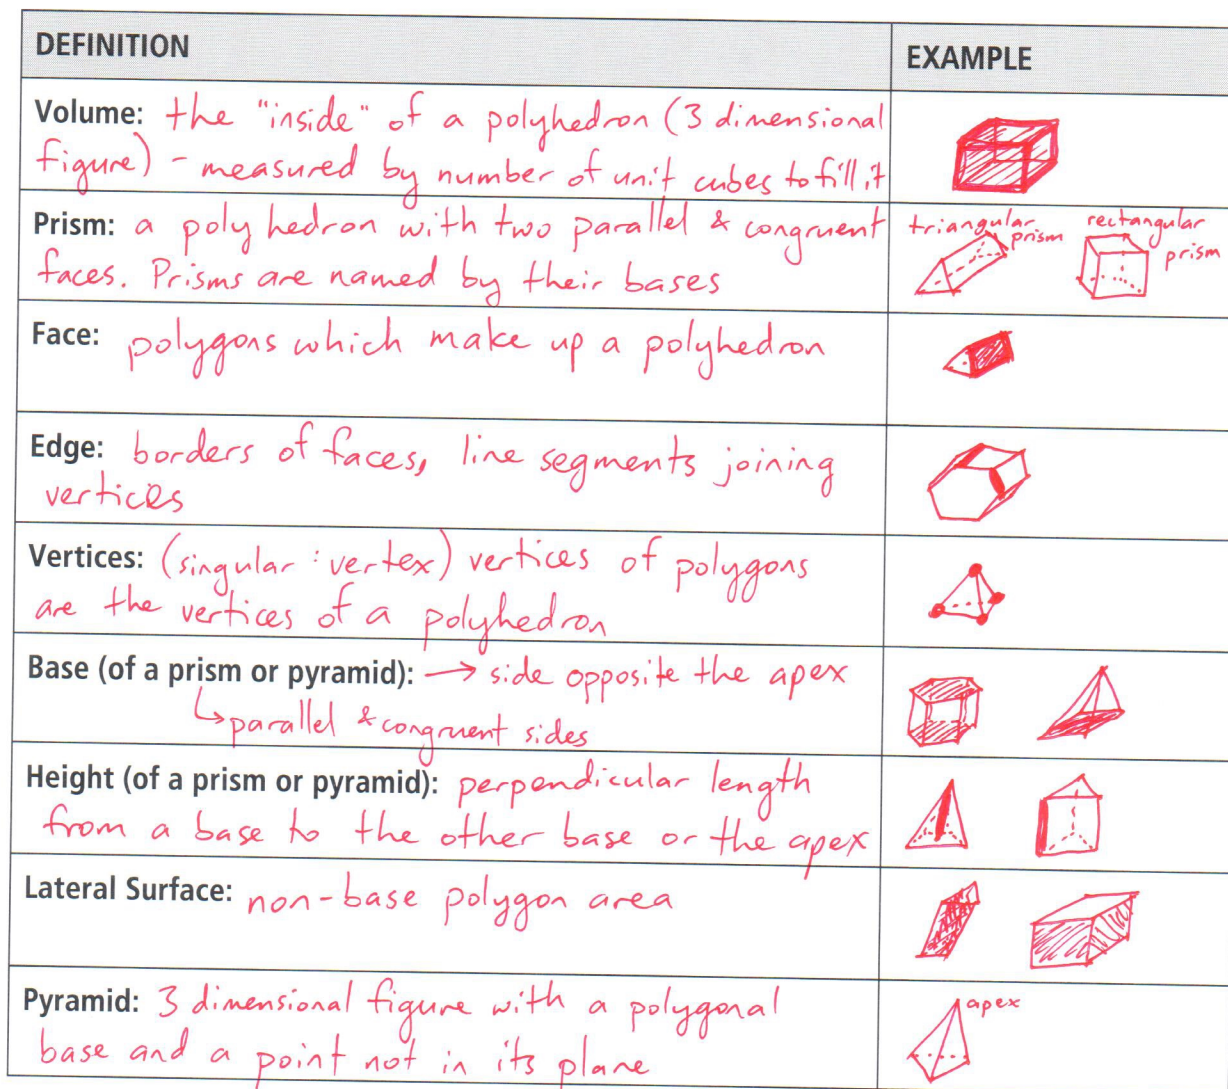 DEFINITION
EXAMPLE
Volume: the "inside" of a polyhedron (3 dimensional
figure) - measured by number of unit cubes to fill it
Prism: a polyhedron with two parallel & congruent
faces. Prisms are named by their bases
triangular
prism
rectangular
prism
Face: polygons which make up a polyhedron
Edge: borders of faces, line segments joining
vertices
Vertices: (singular: vertex) vertices of polygons
are the vertices of a polyhedron
Base (of a prism or pyramid): → side opposite the apex
↳ parallel & congruent sides
Height (of a prism or pyramid): perpendicular length
from a base to the other base or the apex
Lateral Surface: non-base polygon area
Pyramid: 3 dimensional figure with a polygonal
base and a point not in its plane
apex